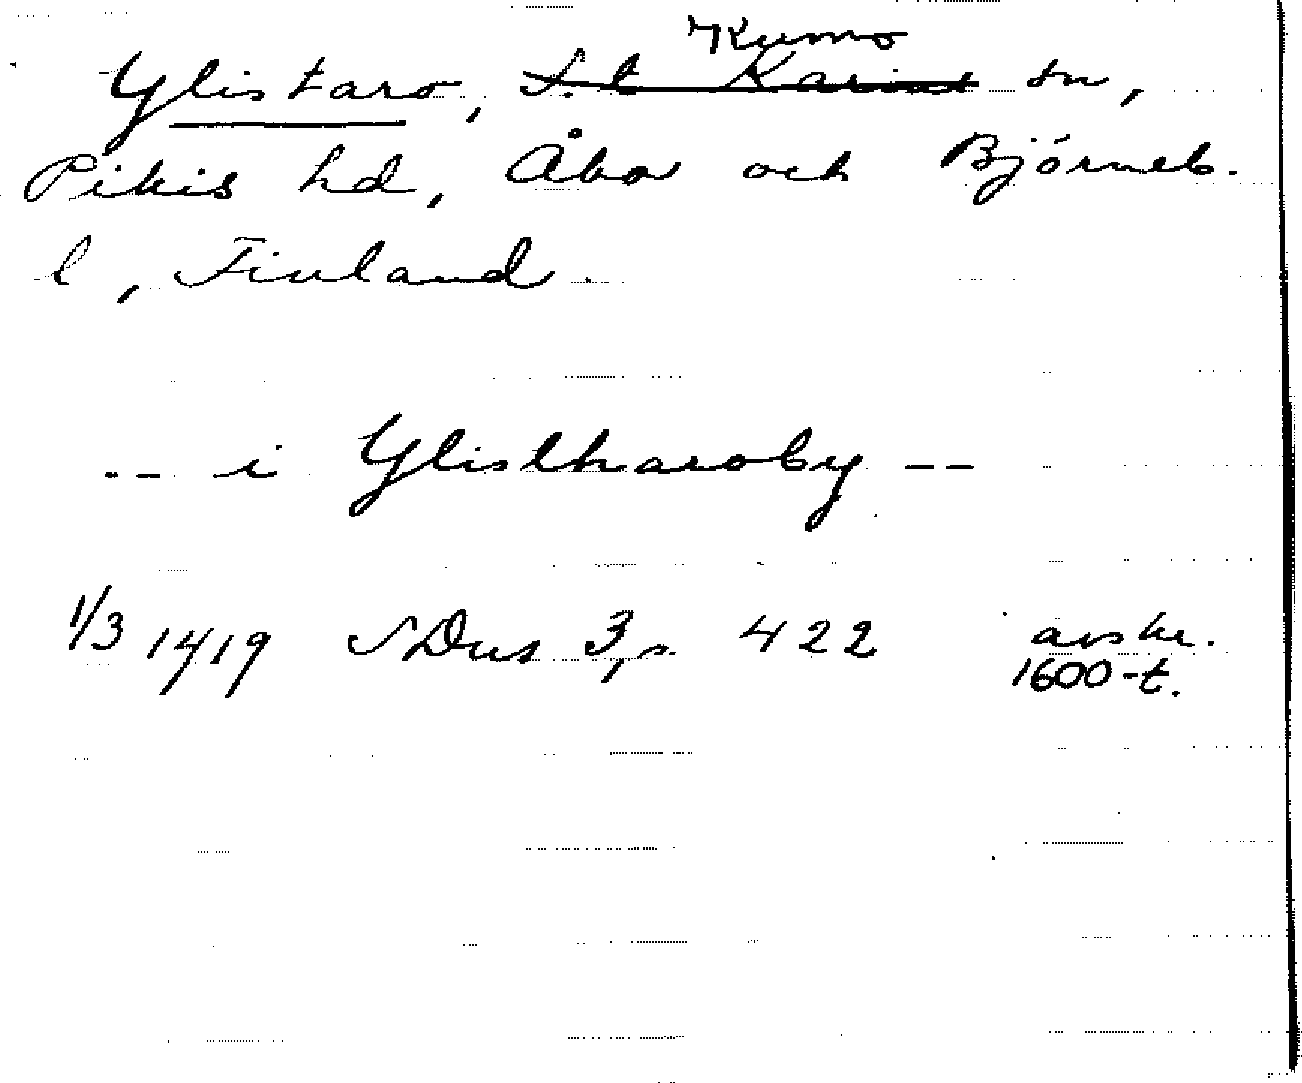 Kumo
Ylistaro, S.t Karins sn,
Pikis hd, Åbo och Björneb.
l, Finland.
-- i Ylistharoby --
1/3 1419 SDns 3, s. 422 avskr.
1600-t.